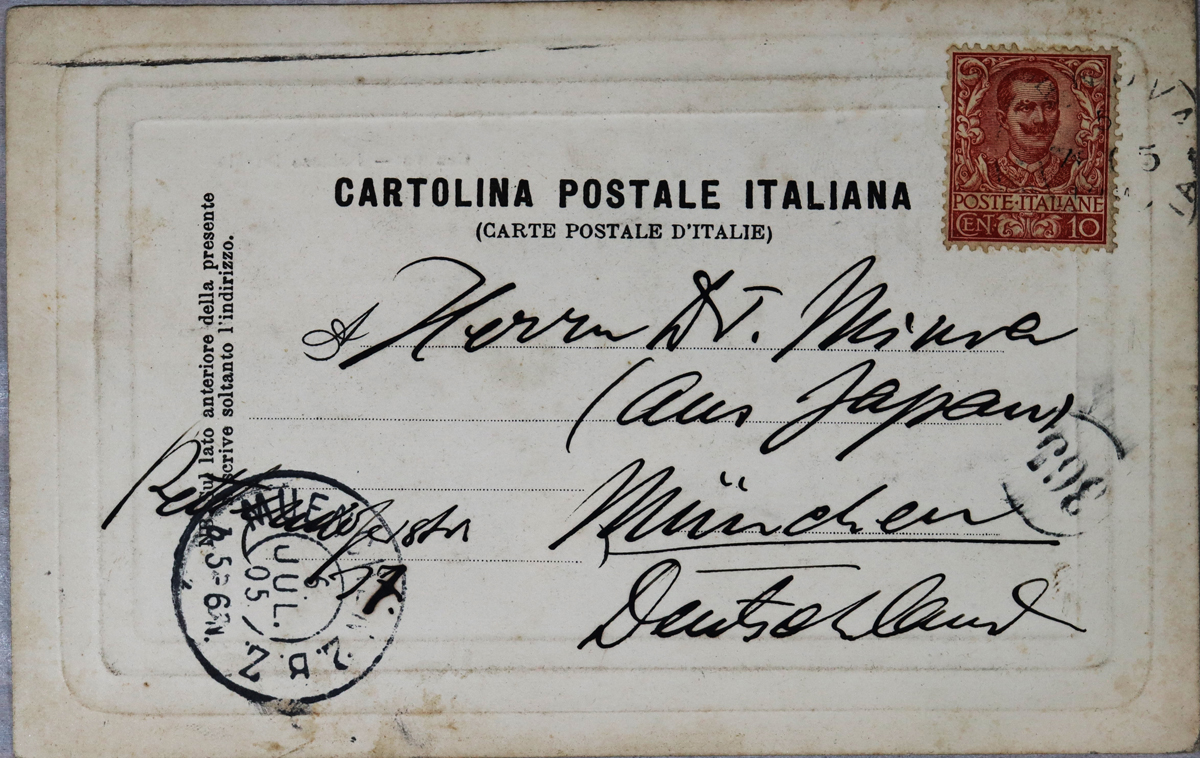 CARTOLINA POSTALE ITALIANA
(CARTE POSTALE D'ITALIE)
POSTE·ITALIANE
CEN. 10
lato anteriore della presente
scrive soltanto l'indirizzo.
A Herrn Dr. Miura
(aus Japan)
München
Deutschland
17
MUENCHEN
JUL.
05.
5-6 N.
2.B.
2